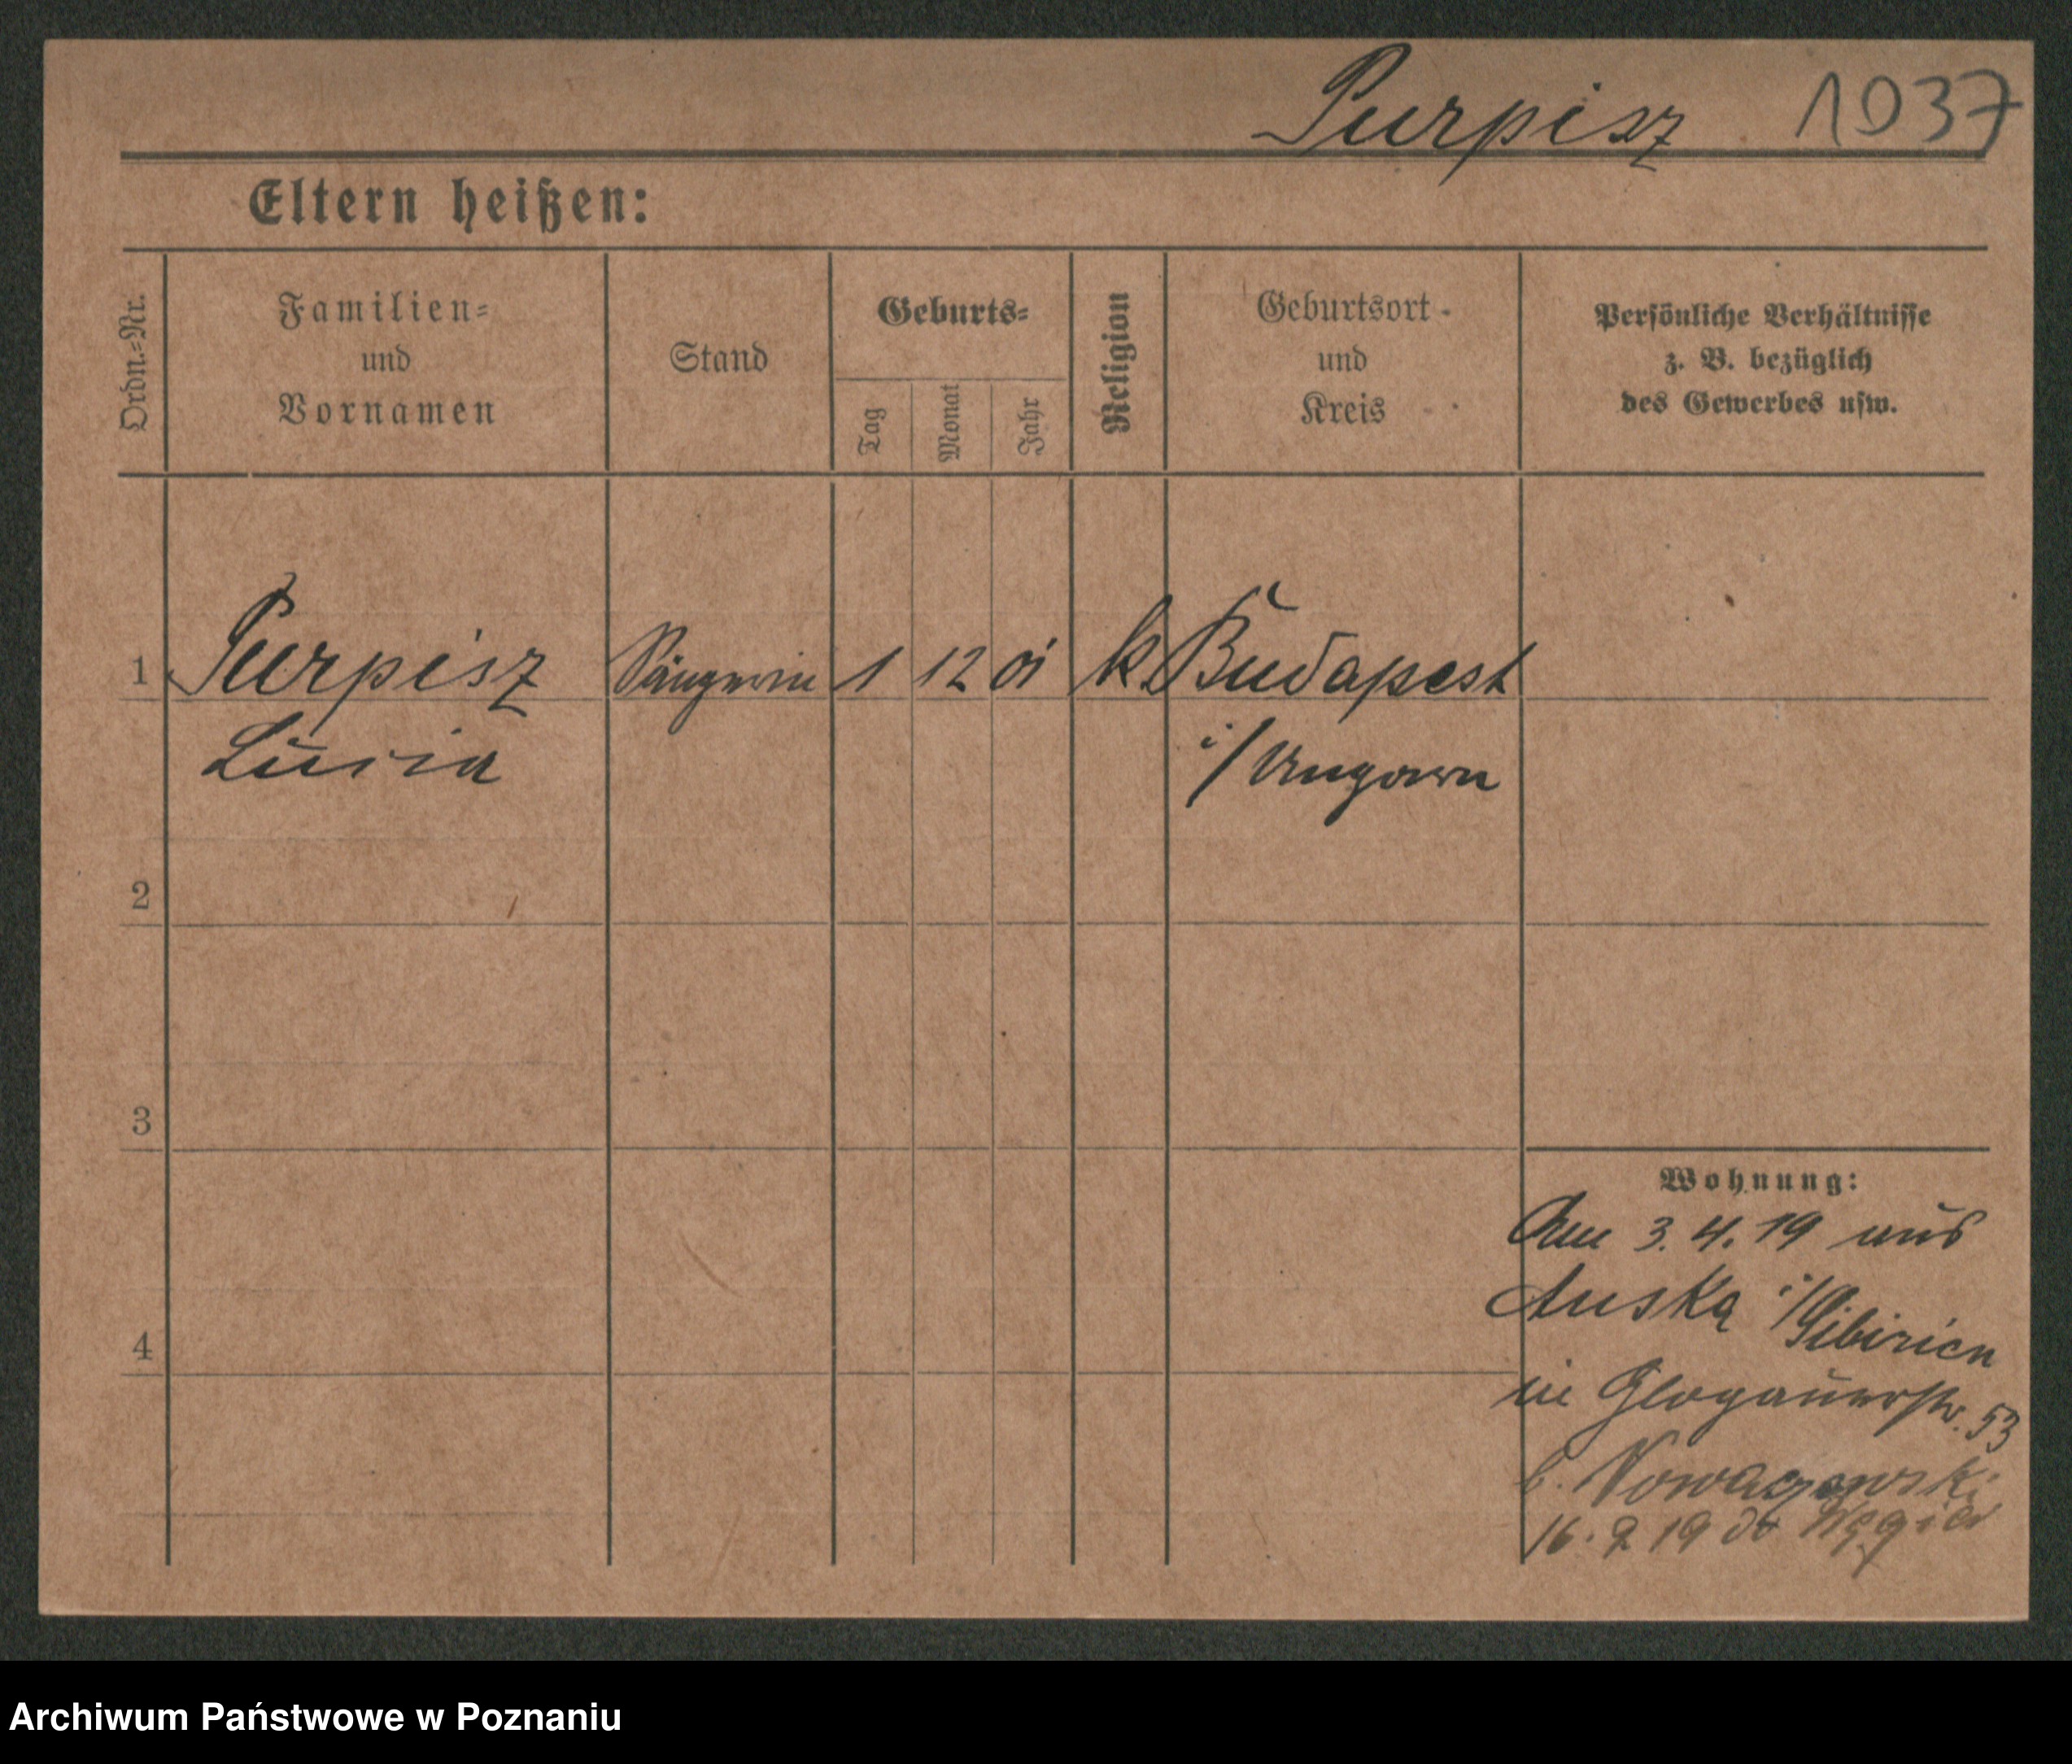 Purpisz 1037
Eltern heißen:
Ordn.-Nr.
Familien-
und
Vornamen
Stand
Geburts-
Tag
Monat
Jahr
Religion
Geburtsort
und
Kreis
Persönliche Verhältnisse
z. B. bezüglich
des Gewerbes usw.
1 Purpisz Sängerin 1 12 01 k. Budapest
Lucia i/Ungarn
2
3
Wohnung:
Am 3.4.19 aus
i/Sibirien
4
in Glogauerstr. 53
b.
16. 9 19 do Węgier
Archiwum Państwowe w Poznaniu